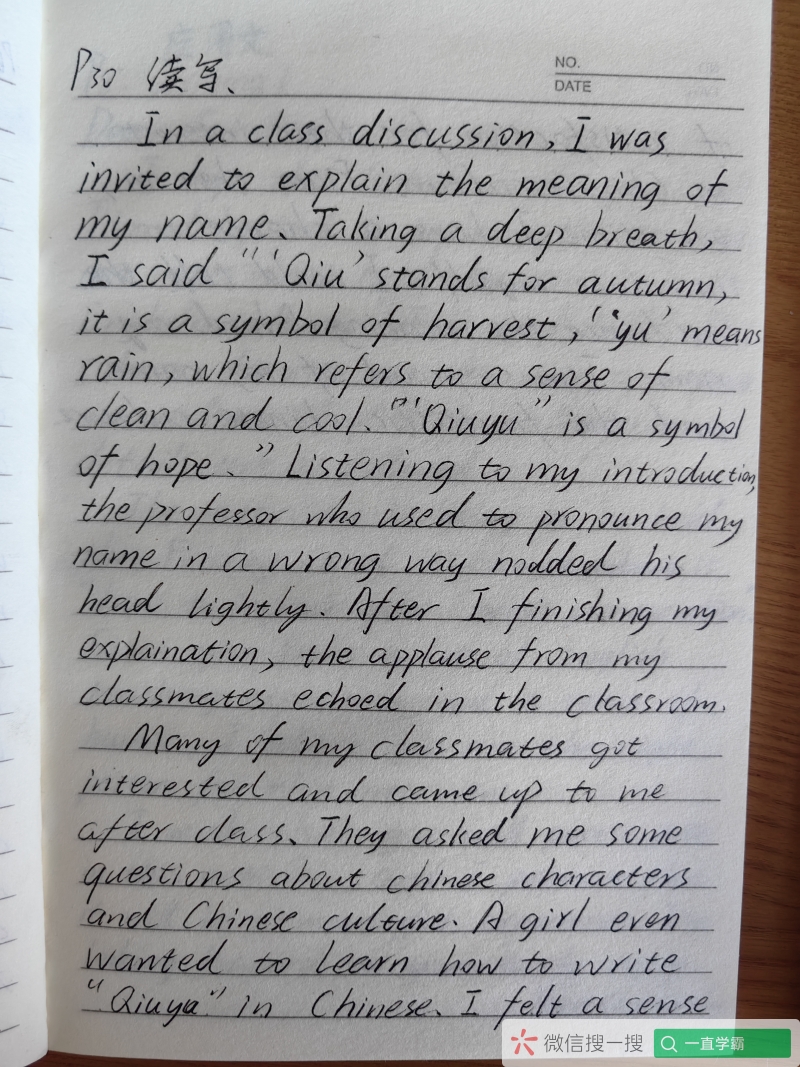 P30 读写、
NO.
DATE
In a class discussion, I was
invited to explain the meaning of
my name、Taking a deep breath,
I said "'Qiu' stands for autumn,
it is a symbol of harvest, 'yu' means
rain, which refers to a sense of
clean and cool."'Qiuyu" is a symbol
of hope." Listening to my introduction,
the professor who used to pronounce my
name in a wrong way nodded his
head lightly. After I finishing my
explaination, the applause from my
classmates echoed in the classroom.
Many of my classmates got
interested and came up to me
after class、They asked me some
questions about chinese characters
and Chinese culture. A girl even
wanted to learn how to write
"Qiuyu" in Chinese、I felt a sense
微信搜一搜 一直学霸